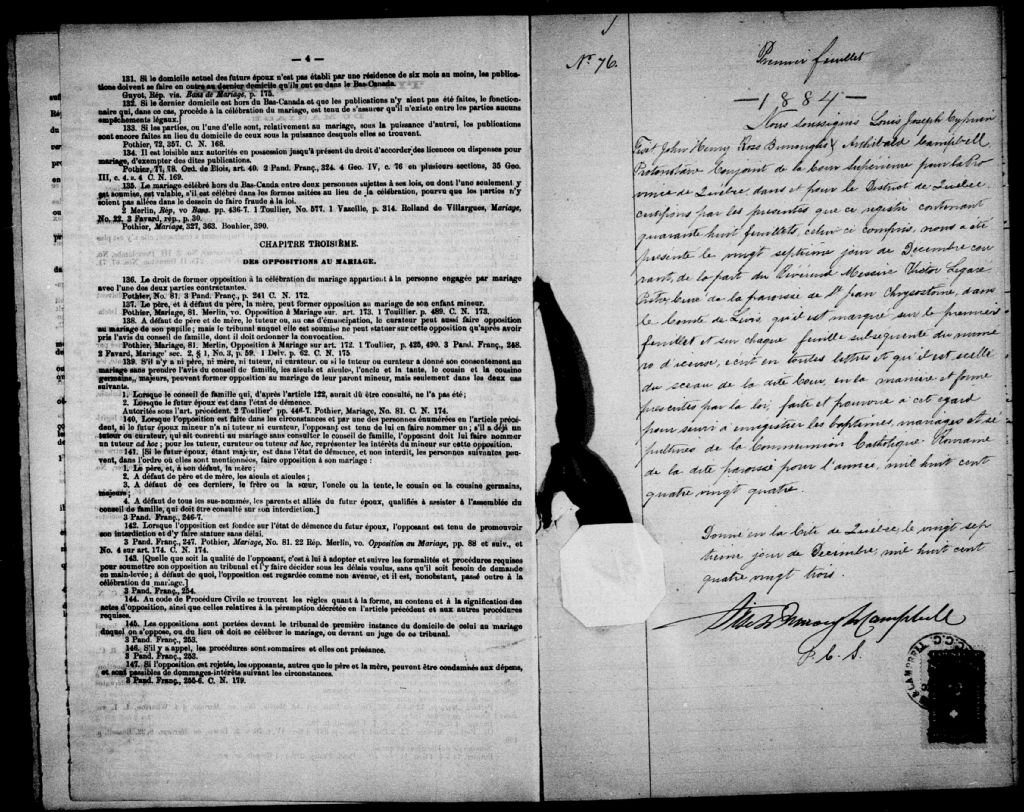 — 4 —
131. Si le domicile actuel des futurs époux n'est pas établi par une résidence de six mois au moins, les publica-
tions doivent se faire en outre au dernier domicile qu'ils ont eu dans le Bas-Canada.
Guyot, Rép. vis. Bans de Mariage, p. 175.
132. Si le dernier domicile est hors du Bas-Canada et que les publications n'y aient pas été faites, le fonction-
naire qui, dans ce cas, procède à la célébration du mariage, est tenu de s'assurer qu'il n'existe entre les parties aucuns
empêchements légaux.]
133. Si les parties, ou l'une d'elle sont, relativement au mariage, sous la puissance d'autrui, les publications
sont encore faites au lieu du domicile de ceux sous la puissance desquels elles se trouvent.
Pothier, 72, 357. C. N. 168.
134. Il est loisible aux autorités en possession jusqu'à présent du droit d'accorder des licences ou dispenses pour
mariage, d'exempter des dites publications.
Pothier, 77, 78. Ord. de Blois, art. 40. 2 Pand. Franç., 324. 4 Geo. IV, c. 76 en plusieurs sections, 35 Geo.
III, c. 4. s. 4 C. N. 169.
135. Le mariage célébré hors du Bas-Canda entre deux personnes sujettes à ses lois, ou dont l'une seulement y
est soumise, est valable, s'il est célébré dans les formes usitées au lieu de la célébration, pourvu que les parties n'y
soient pas allées dans le dessein de faire fraude à la loi.
2 Merlin, Rép, vo Bans. pp. 436-7. 1 Toullier, No. 577. 1 Vazeille, p. 314. Rolland de Villargues, Mariage,
No. 22, 3 Favard, rép., p. 30.
Pothier, Mariage, 327, 363. Bouhier, 390.
CHAPITRE TROISIÈME.
DES OPPOSITIONS AU MARIAGE.
136. Le droit de former opposition à la célébration du mariage appartient à la personne engagée par mariage
avec l'une des deux parties contractantes.
Pothier, No. 81. 3 Pand. Franç., p. 241 C. N. 172.
137. Le père, et à défaut du père, la mère, peut former opposition au mariage de son enfant mineur.
Pothier, Mariage, 81. Merlin, vo. Opposition à Mariage sur. art. 173. 1 Touillier. p. 489. C. N. 173.
138. A défaut de père et de mère, le tuteur ou, au cas d'émancipation, le curateur peut aussi faire opposition
au mariage de son pupille; mais le tribunal auquel elle est soumise ne peut statuer sur cette opposition qu'après avoir
pris l'avis du conseil de famille, dont il doit ordonner la convocation.
Pothier, Mariage, 81. Merlin, Opposition à Mariage sur art. 172. 1 Toullier, p. 425, 490. 3 Pand. Franç., 248.
2 Favard, Mariage' sec. 2, § 1, No. 3, p. 59. 1 Delv. p. 62. C. N. 175
139. S'il n'y a ni père, ni mère, ni tuteur, ni curateur, ou si le tuteur ou curateur a donné son consentement au
mariage sans prendre l'avis du conseil de famille, les aïeuls et aïeules, l'oncle et la tante, le cousin et la cousine
germains, majeurs, peuvent former opposition au mariage de leur parent mineur, mais seulement dans les deux cas
suivants.
1. Lorsque le conseil de famille qui, d'après l'article 122, aurait dû être consulté, ne l'a pas été;
2. Lorsque le futur époux est dans l'état de démence.
Autorités sous l'art. précédent. 2 Toullier' pp. 446-7. Pothier, Mariage, No. 81. C. N. 174.
140. Lorsque l'opposition est faite dans les circonstances et par une des personnes énumérées en l'article précé-
dent, si le futur époux mineur n'a ni tuteur ni curateur, l'opposant est tenu de lui en faire nommer un; s'il a déjà un
tuteur ou curateur, qui ait consenti au mariage sans consulter le conseil de famille, l'opposant doit lui faire nommer
un tuteur ad hoc; pour les tuteur, curateur ou tuteur ad hoc, représenter les intérêts du mineur sur cette opposition.
141. [Si le futur époux, étant majeur, est dans l'état de démence, et non interdit, les personnes suivantes peu-
vent, dans l'ordre où elles sont mentionnées, faire opposition à son mariage:
1. Le père, et, à son défaut, la mère;
2. A défaut de père et de mère, les aïeuls et aïeules;
3. A défaut de ces derniers, le frère ou la sœur, l'oncle ou la tante, le cousin ou la cousine germains,
majeurs;
4. A défaut de tous les sus-nommés, les parents et alliés du futur époux, qualifiés à assister à l'assemblée du
conseil de famille, qui doit être consulté sur son interdiction.]
3 Pand. Franç., 246-7.
142. Lorsque l'opposition est fondée sur l'état de démence du futur époux, l'opposant est tenu de promouvoir
son interdiction et d'y faire statuer sans délai.
3 Pand. Franç., 247. Pothier, Mariage, No. 81. 22 Rép. Merlin, vo. Opposition au Mariage, pp. 88 et suiv., et
No. 4 sur art. 174. C. N. 174.
143. [Quelle que soit la qualité de l'opposant, c'est à lui à adopter et suivre les formalités et procédures requises
pour soumettre son opposition au tribunal et l'y faire décider sous les délais voulus, sans qu'il soit besoin de demande
en main-levée; à défaut de quoi, l'opposition est regardée comme non avenue, et il est, nonobstant, passé outre à la
célébration du mariage.]
3 Pand. Franç., 254.
144. Au code de Procédure Civile se trouvent les règles quant à la forme, au contenu et à la signification des
actes d'opposition, ainsi que celles relatives à la péremption décrétée en l'article précédent et aux autres procédures
requises.
145. Les oppositions sont portées devant le tribunal de première instance du domicile de celui au mariage
duquel on s'oppose, ou du lieu où doit se célébrer le mariage, ou devant un juge de ce tribunal.
3 Pand. Franç., 253.
146. S'il y a appel, les procédures sont sommaires et elles ont préséance.
3 Pand. Franç., 253.
147. Si l'opposition est rejetée, les opposants, autres que le père et la mère, peuvent être condamnés aux dépens,
et sont passibles de dommages-intérêts suivant les circonstances.
3 Pand. Franç., 255-6. C. N. 179.
No 76.
Premier feuillet
— 1884 —
Nous soussignés Louis Joseph Cyprien
Fiset John Henry Ross Burroughs & Archibald Campbell
Protonotaire Conjoint de la Cour Supérieure pour la Pro
vince de Québec, dans et pour le District de Québec
certifions par les presentes que ce registre contenant
quarante huit feuillets, celui ci compris, nous a été
presenté le vingt septième jour de Decembre cou
rant, de la part du Révérend Messire Victor Légaré
Ptre, Curé de la paroisse de St Jean Chrysostome, dans
le Comté de Lévis, qu'il est marqué sur le premier
feuillet et sur chaque feuille subséquente du numé
ro d'icelui, ecrit en toutes lettres et qu'il est scellé
du sceau de la dite Cour, en la manière et forme
prescrites par la loi, faite et pourvue à cet egard
pour servir à enregistrer les baptêmes, mariages et sé
pultures de la Communion Catholique Romaine
de la dite paroisse pour l'année, mil huit cent
quatre vingt quatre.
Donné en la Cité de Québec le vingt sep
tième jour de Decembre, mil huit cent
quatre vingt trois.
Fiset Burroughs Campbell
P. C. S.